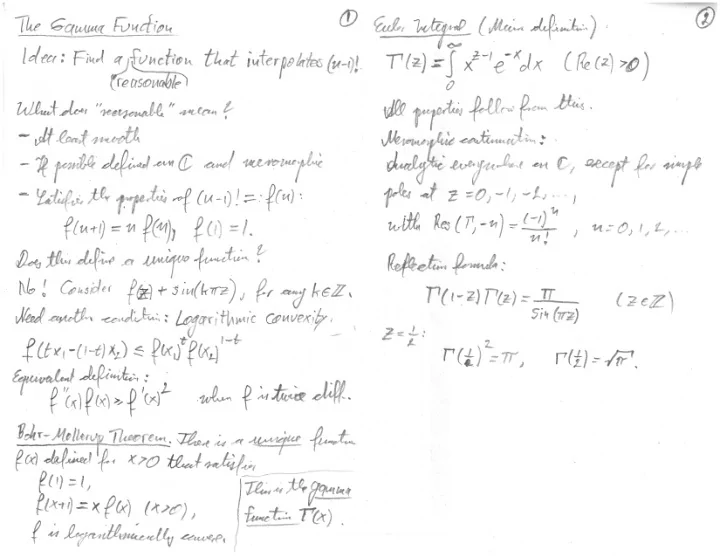 The Gamma Function ①
Idea: Find a function that interpolates (n-1)!
(reasonable)
What does "reasonable" mean?
- At least smooth
- If possible defined on ℂ and meromorphic
- Satisfies the properties of (n-1)! =: f(n):
f(n+1) = n f(n), f(1) = 1.
Does this define a unique function?
No! Consider f(z) + sin(kπz), for any k∈ℤ.
Need another condition: Logarithmic convexity.
f(tx₁-(1-t)x₂) ≤ f(x₁)^t f(x₂)^{1-t}
Equivalent definition:
f''(x) f(x) ≥ f'(x)² when f is twice diff.
Bohr-Mollerup Theorem. There is a unique function
f(x) defined for x>0 that satisfies
f(1) = 1,
f(x+1) = x f(x) (x>0),
f is logarithmically convex.
This is the gamma
function Γ(x).
Euler Integral (Main definition) ②
Γ(z) = ∫₀^∞ x^{z-1} e^{-x} dx (Re(z)>0)
All properties follow from this.
Meromorphic continuation:
Analytic everywhere on ℂ, except for simple
poles at z = 0, -1, -2, ...,
with Res(Γ, -n) = (-1)^n / n! , n = 0, 1, 2, ...
Reflection formula:
Γ(1-z) Γ(z) = π / sin(πz) (z∈ℤ)
z = 1/2:
Γ(1/2)² = π, Γ(1/2) = √π.